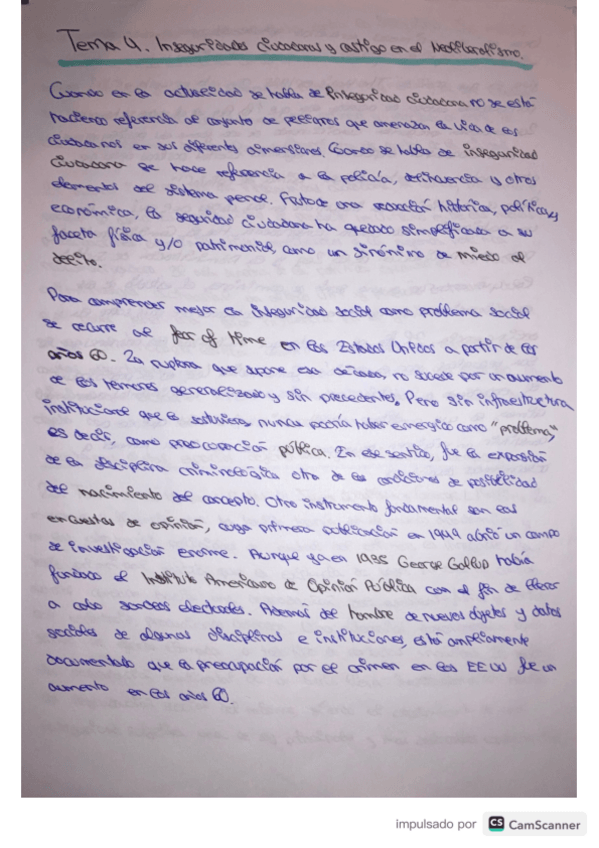 Tema 4. Inseguridades ciudadanas y castigo en el Neoliberalismo.
Cuando en la actualidad se habla de inseguridad ciudadana no se está
haciendo referencia al conjunto de peligros que amenazan la vida de los
ciudadanos en sus diferentes dimensiones. Cuando se habla de inseguridad
ciudadana se hace referencia a la policía, delincuencia y otros
elementos del sistema penal. Fruto de una reducción histórica, política y
económica, la seguridad ciudadana ha quedado simplificada a su
faceta física y/o patrimonial, como un sinónimo de miedo al
delito.
Para comprender mejor la inseguridad social como problema social
se recurre al fear of crime en los Estados Unidos a partir de los
años 60. La ruptura que supone esa década, no sucede por un aumento
de los temores generalizado y sin precedentes. Pero sin infraestructura
institucional que la sostuviera, nunca podría haber emergido como "problema,"
es decir, como preocupación pública. En ese sentido, fue la expansión
de la disciplina criminológica otra de las condiciones de posibilidad
del nacimiento del concepto. Otro instrumento fundamental son las
encuestas de opinión, cuya primera publicación en 1949 abrió un campo
de investigación enorme. Aunque ya en 1935 George Gallup había
fundado el Instituto Americano de Opinión Pública con el fin de llevar
a cabo sondeos electorales. Además del hambre de nuevos objetos y datos
sociales de algunas disciplinas e instituciones, está ampliamente
documentado que la preocupación por el crimen en los EEUU fue un
aumento en los años 60.
impulsado por CS CamScanner